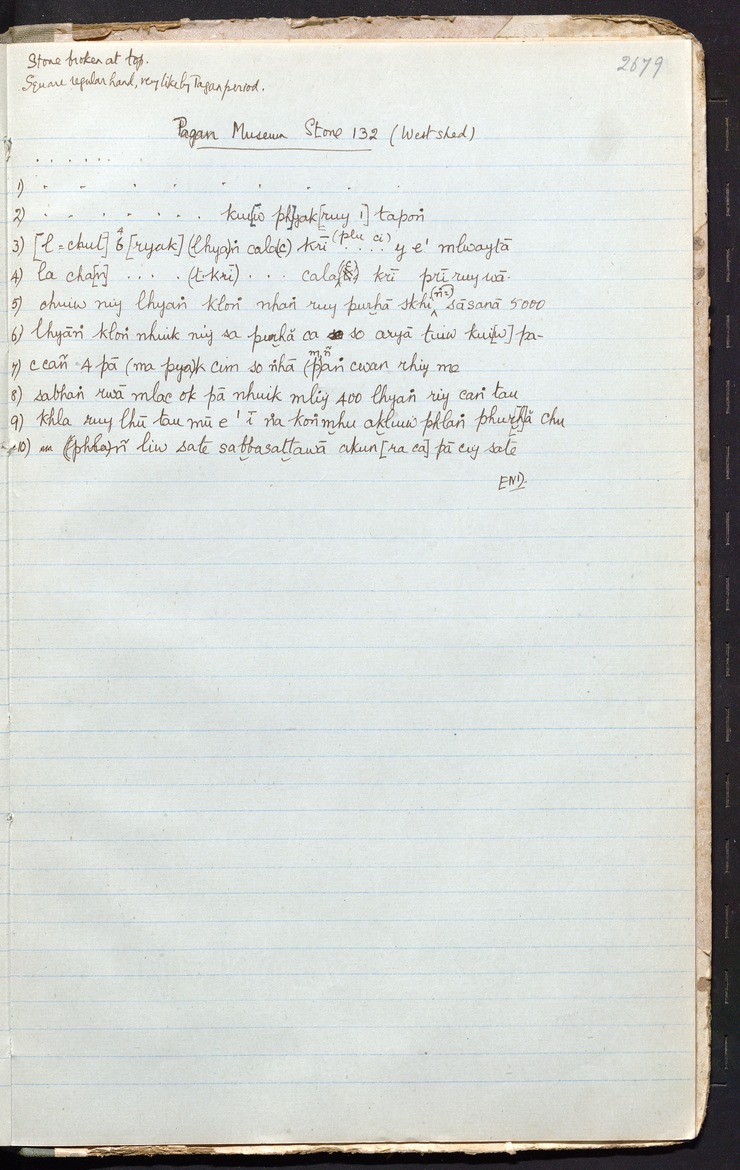 Stone broken at top.
Square regular hand, very likely Pagan period.
2679
Pagan Museum Stone 132 (West shed)
. . . . . .
1) . . . . . . . .
2) . . . . . . . kuiw phyak[ruy 1] tapoṅ
3) [l = chul] 6 [ryak] (lhyaṅ cala(c) krī (plu ci) . . . . y e' mlwaytā
4) la cha[ṅ] . . . . (t·krī) . . . cala(ṅ) krī prī ruy wā·
5) chuiw niy lhyaṅ kloṅ nhaṅ ruy purhā skhi(ṅ=) sāsanā 5000
6) lhyāṅ kloṅ nhuik niy sa purhā ca so aryā tuiw kui[w] pa-
7) ccañ 4 pā (ma pya)k cim so ṅhā (p)an cwan rhiy me
8) sabhaṅ rwā mlac ok pā nhuik mliy 400 lhyaṅ riy can tau
9) khla ruy lhū tau mū e' ī ṅa koṅmhu akluiw phlaṅ phurhā chu
10) (phla)ñ liw sate sabbasattawā akun [ra ca] pā ciy satē
END.